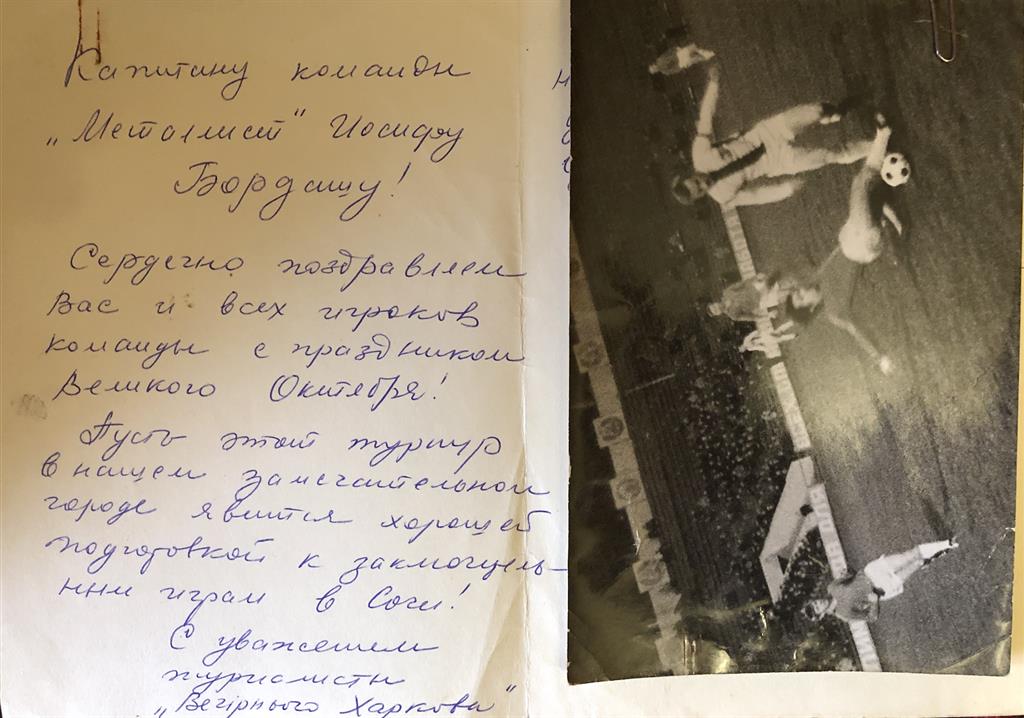 Капитану команды
„Металлист" Иосифу
Бордашу!
Сердечно поздравляем
Вас и всех игроков
команды с праздником
Великого Октября!
Пусть этот турнир
в нашем замечательном
городе явится хорошей
подготовкой к заключитель-
ным играм в Сочи!
С уважением
журналисты
„Вечірнього Харкова"